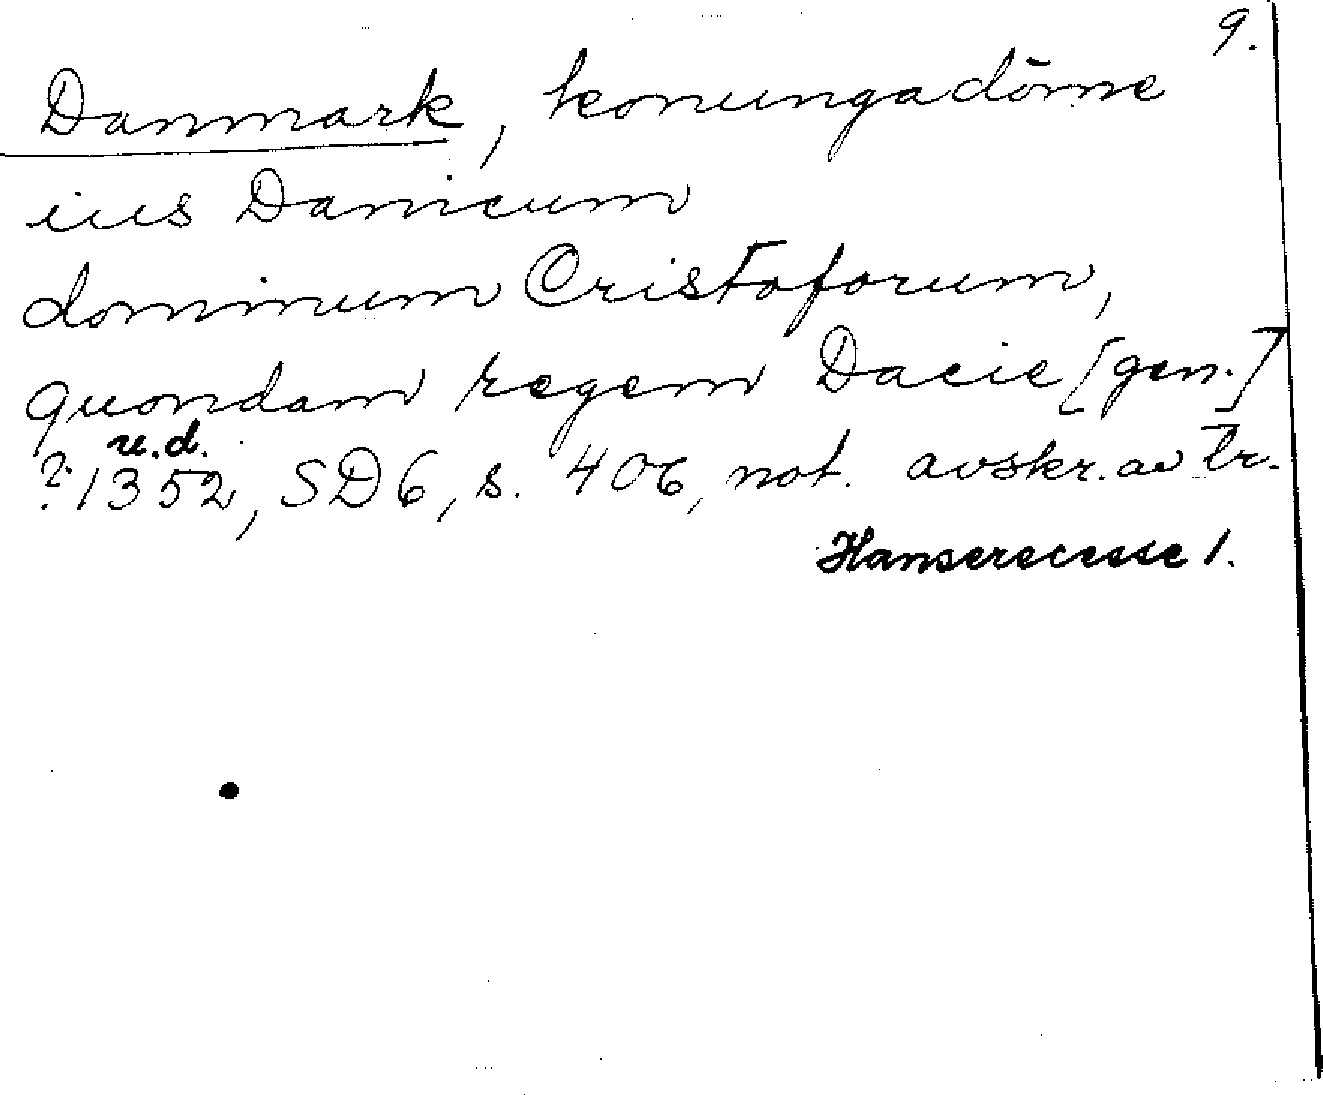 9.
Danmark, konungadöme
ius Danicum
dominum Cristoforum,
quondam regem Dacie [gen.]
u.d.
?. 1352, SD6, s. 406, not. avskr. av tr.
Hanserecesse 1.